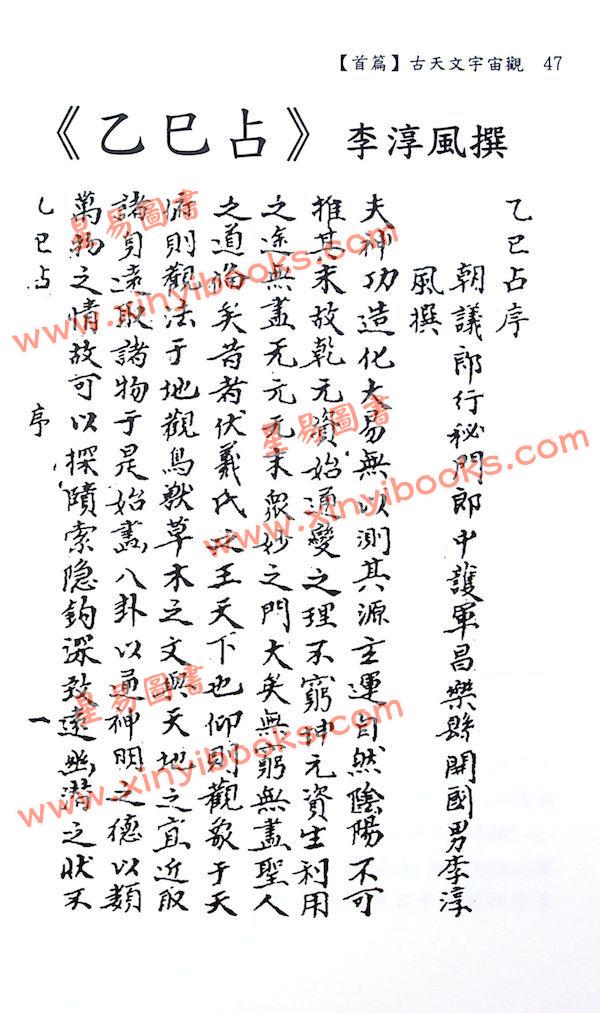 【首篇】古天文宇宙觀 47
《乙巳占》李淳風撰
乙巳占序
朝議郎行秘門郎中護軍昌樂縣開國男李淳
風撰
夫神功造化大易無以測其源玄運自然陰陽不可
推其末故乾元資始通變之理不窮坤元資生利用
之途無盡无元无末眾妙之門大矣無窮無盡聖人
之道備矣昔者伏羲氏之王天下也仰則觀象于天
俯則觀法于地觀鳥獸草木之文與天地之宜近取
諸身遠取諸物于是始畫八卦以通神明之德以類
萬物之情故可以探賾索隐鈎深致遠幽潛之狀不
乙巳占 序 一
星易圖書
www.xinyibooks.com
星易圖書
www.xinyibooks.com
星易圖書
www.xinyibooks.com